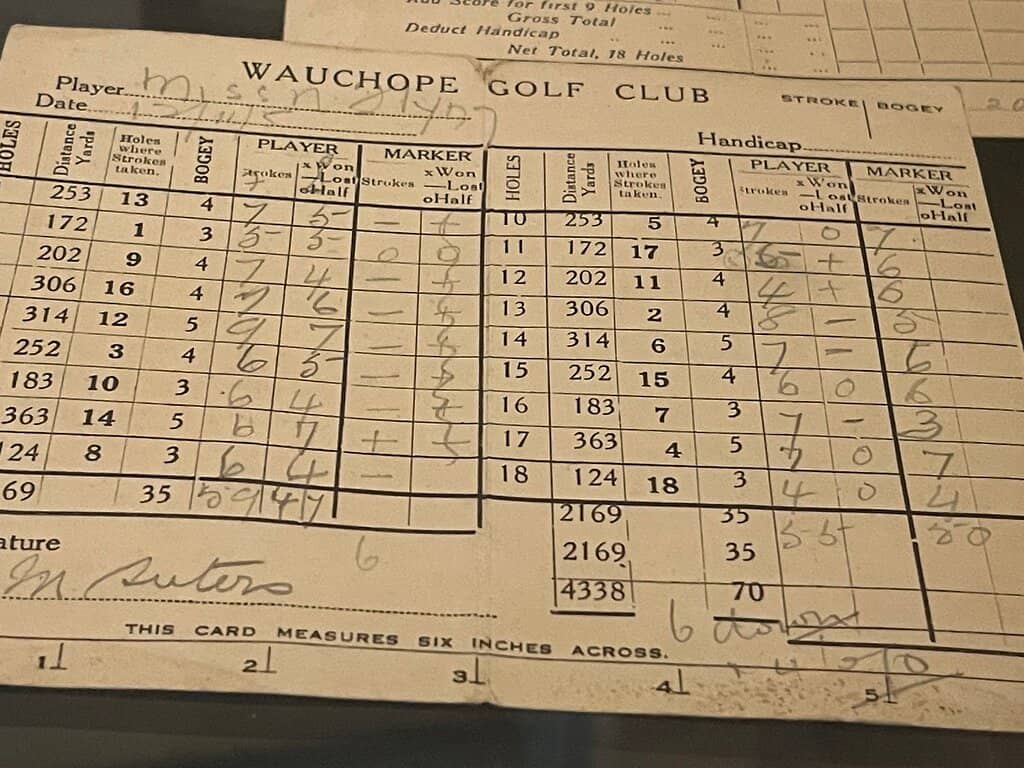 Add Score for first 9 Holes ...
Gross Total ...
Deduct Handicap .. ...
Net Total, 18 Holes ...
WAUCHOPE GOLF CLUB
STROKE | BOGEY
Player Miss
Date
Handicap
HOLES Distance Yards Holes where Strokes taken. BOGEY PLAYER Strokes x Won —Lost oHalf MARKER Strokes x Won —Lost oHalf
253 13 4 7 5 — +
172 1 3 5 5 0 0
202 9 4 7 4 — +
306 16 4 7 6 —
314 12 5 9 7 —
252 3 4 6 5 —
183 10 3 6 4 —
363 14 5 6 7 +
124 8 3 6 4 —
69 35 59 47
6
ature
M Suters
HOLES Distance Yards Holes where Strokes taken. BOGEY PLAYER Strokes x Won —Lost oHalf MARKER Strokes xWon —Lost oHalf
10 253 5 4 7 0 7
11 172 17 3 + 6
12 202 11 4 4 + 6
13 306 2 4 8 — 5
14 314 6 5 7 — 6
15 252 15 4 6 0 6
16 183 7 3 7 — 3
17 363 4 5 7 0 7
18 124 18 3 4 0 4
2169 35 55 50
2169 35
4338 70
6 down
THIS CARD MEASURES SIX INCHES ACROSS.
1 2 3 4 5